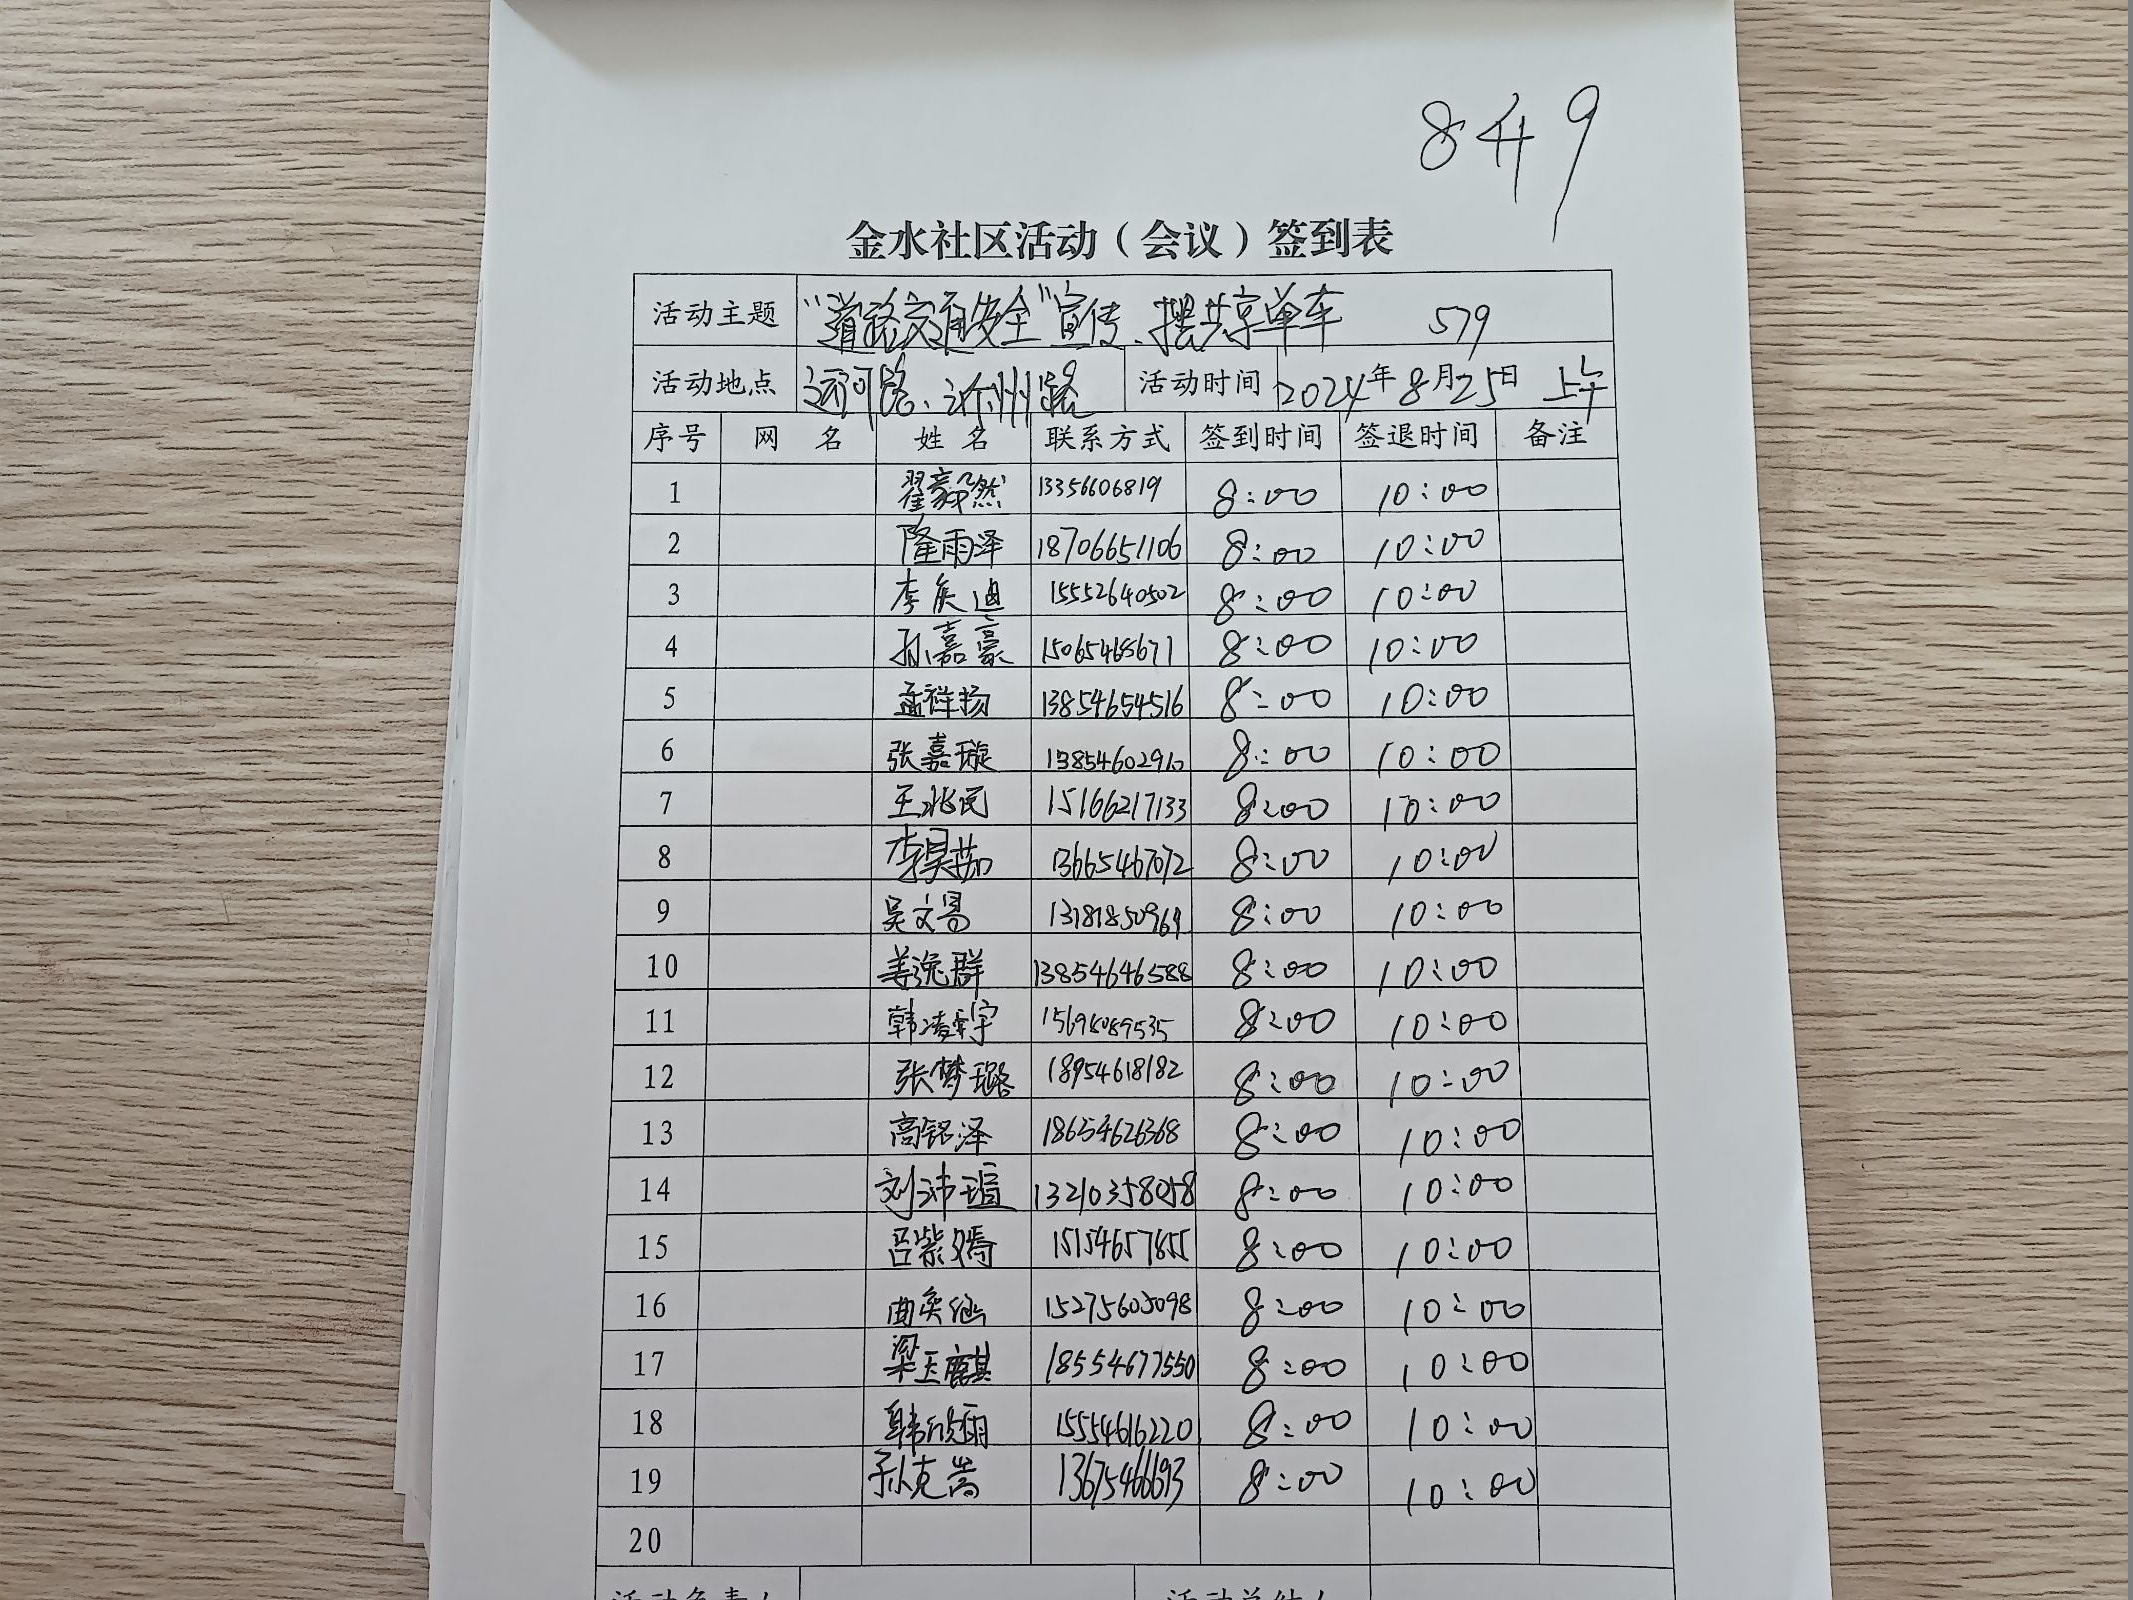 849
金水社区活动（会议）签到表
活动主题 “道路交通安全”宣传、摆共享单车 579
活动地点 运河路、沂州路 活动时间 2024年8月25日 上午
序号 网 名 姓 名 联系方式 签到时间 签退时间 备注
1 翟豪然 13356606819 8:00 10:00
2 隆雨泽 18706651106 8:00 10:00
3 李奂迪 15552640502 8:00 10:00
4 孙嘉豪 15065468671 8:00 10:00
5 孟祥扬 13854654516 8:00 10:00
6 张嘉璇 13854602910 8:00 10:00
7 王兆民 15166217133 8:00 10:00
8 李昊茹 13665467072 8:00 10:00
9 吴文昜 13181850969 8:00 10:00
10 姜逸群 13854646588 8:00 10:00
11 韩凌宇 15698089535 8:00 10:00
12 张梦璐 18954618182 8:00 10:00
13 高铭泽 18654626368 8:00 10:00
14 刘沛瑄 13210358058 8:00 10:00
15 吕紫嫣 15154657855 8:00 10:00
16 曲奕涵 15275605098 8:00 10:00
17 梁玉麒 18554677550 8:00 10:00
18 韩欣雨 15554616220 8:00 10:00
19 孙克嵩 13675466693 8:00 10:00
20